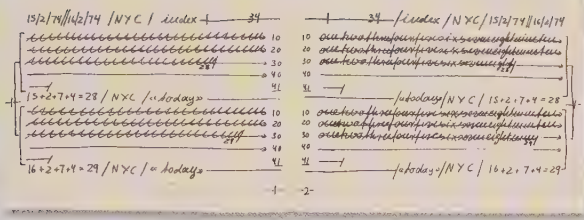 15/2/74//16/2/74 / NYC / index 34
10
20
28 30
40
41
15+2+7+4=28 / NYC / «today»
10
20
29 30
40
41
16+2+7+4=29 / NYC / «today»
-1-
34 / index / NYC / 15/2/74//16/2/74
10 onetwothreefourfivesixseveneightnineten
20 onetwothreefourfivesixseveneightnineten
30 onetwothreefourfivesixseveneight 28
40
41
/ «today» / NYC / 15+2+7+4=28
10 onetwothreefourfivesixseveneightnineten
20 onetwothreefourfivesixseveneightnineten
30 onetwothreefourfivesixseveneightnine 29
40
41
/ «today» / NYC / 16+2+7+4=29
-2-